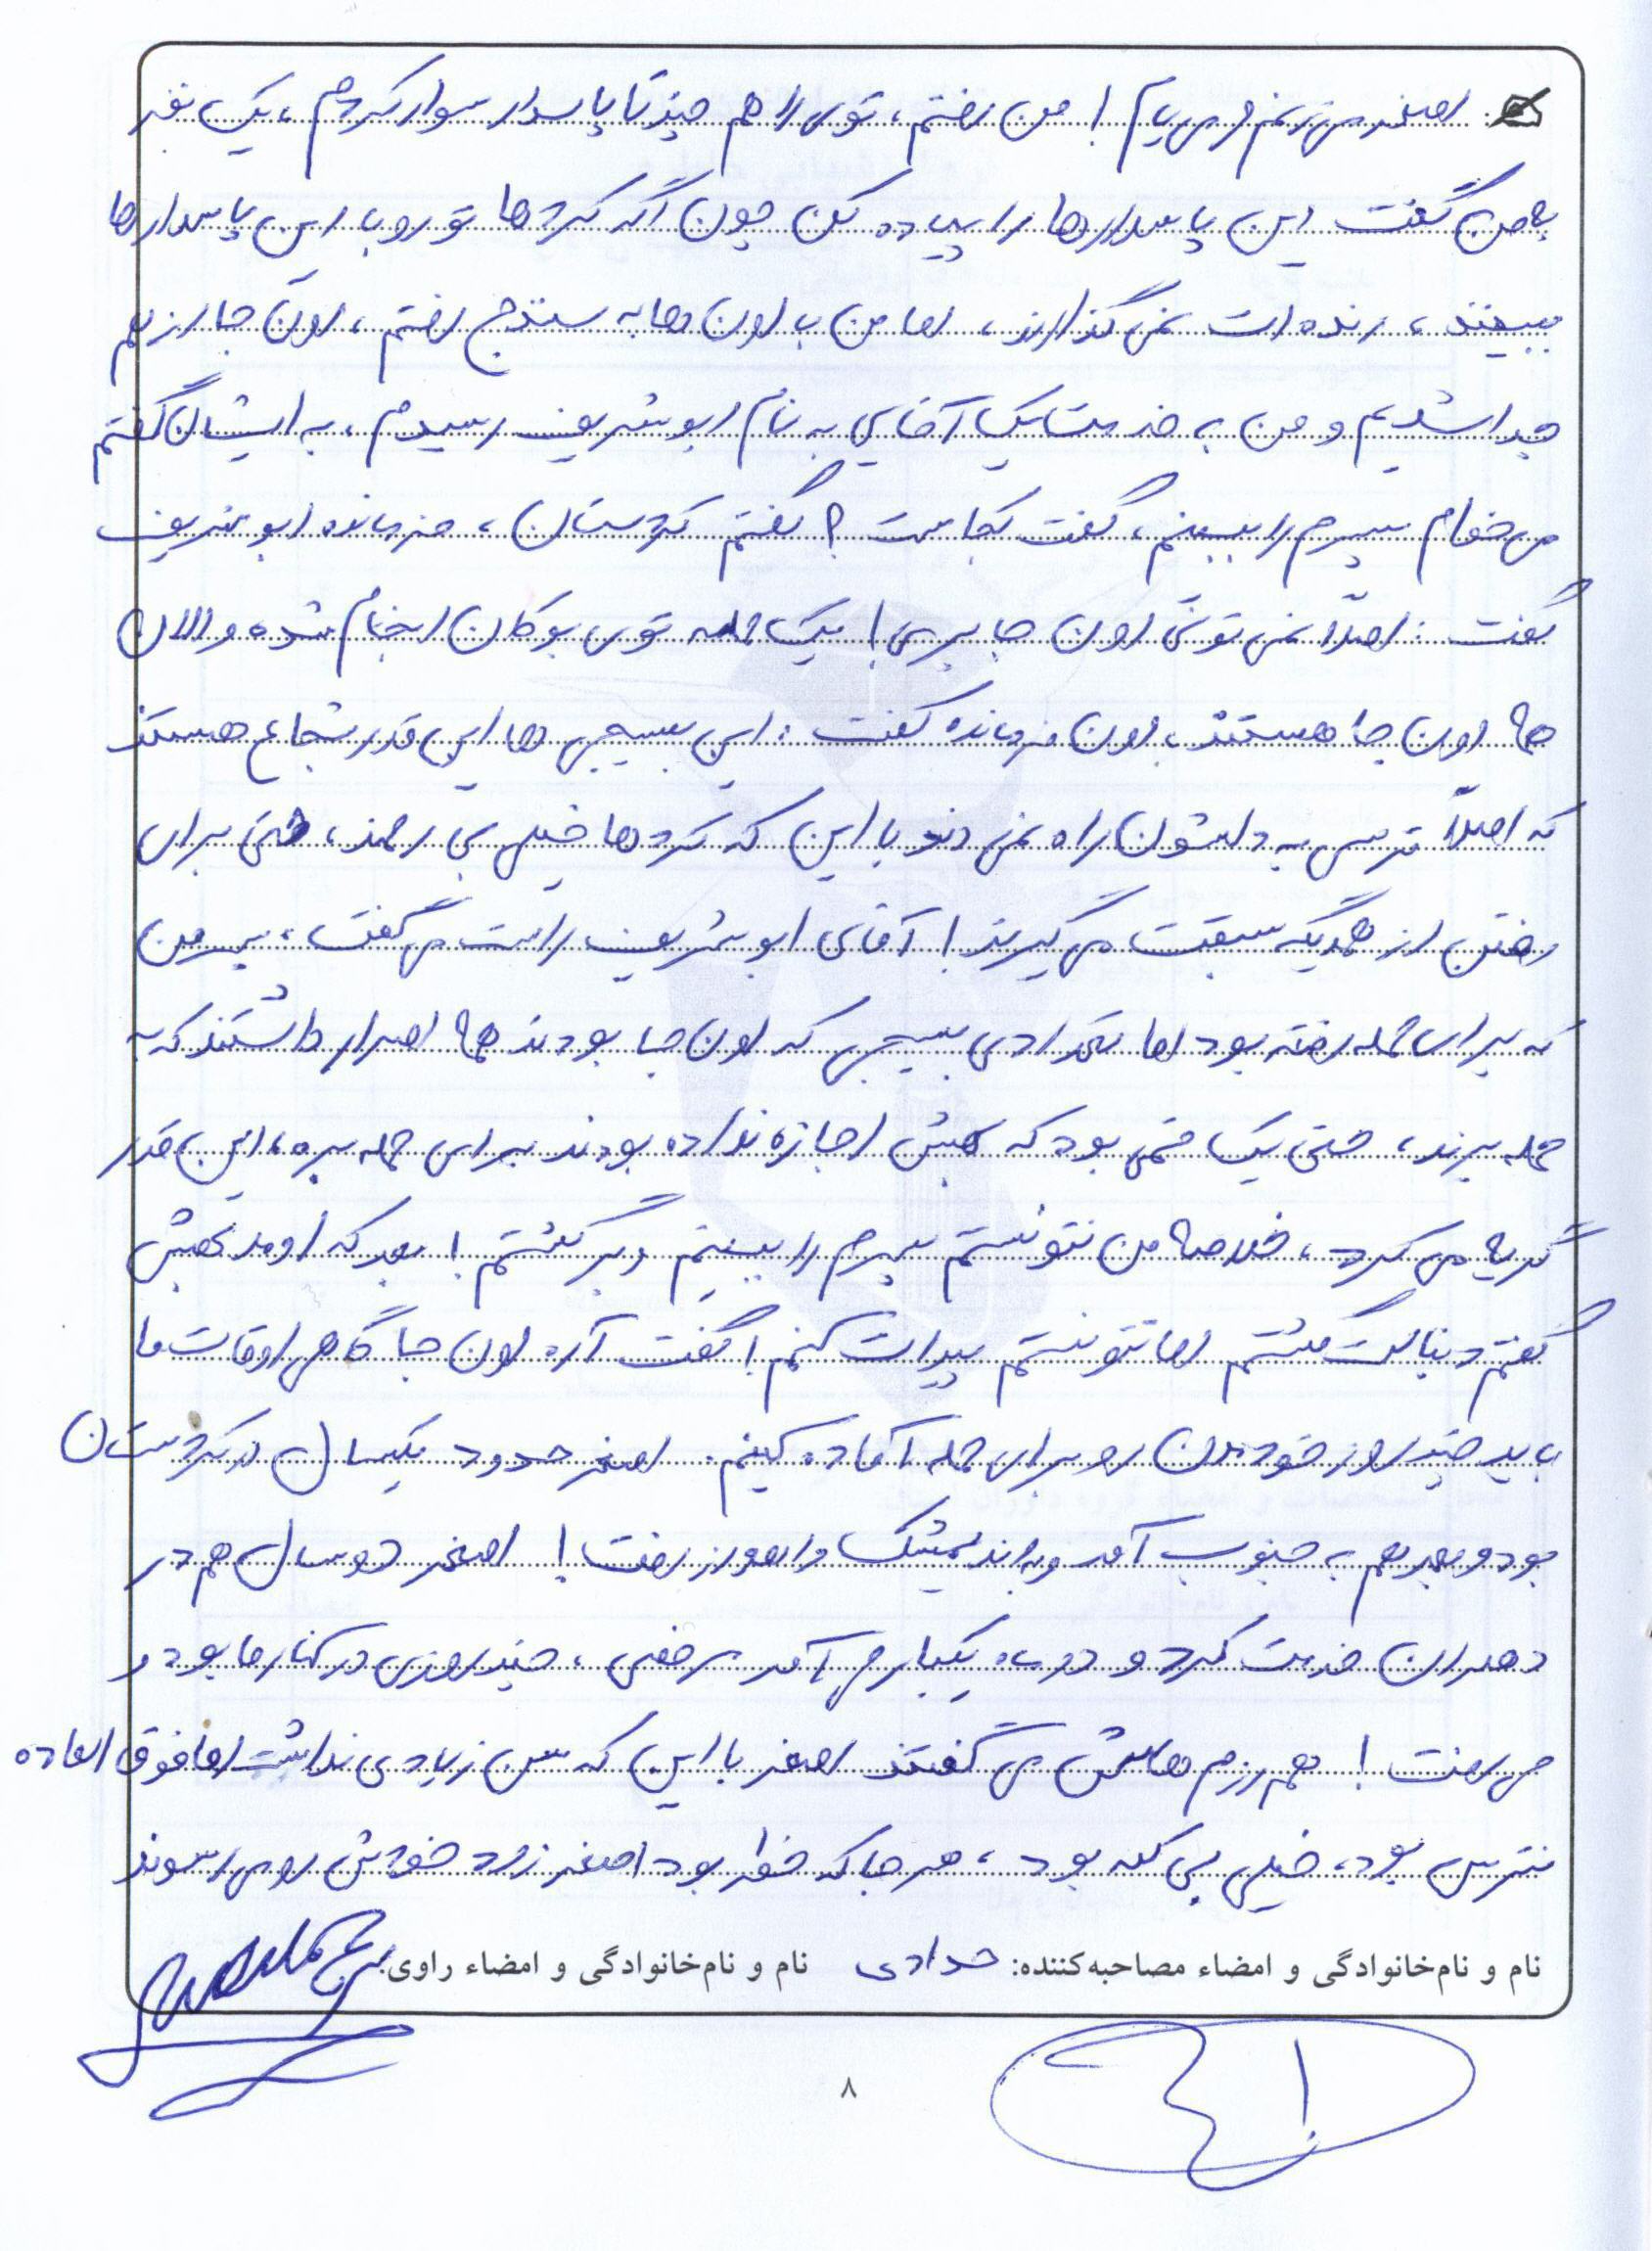 اصغر می‌زنم و می‌یام! من رفتم، توی راه هم چند تا پاسدار سوار کردم، یک نفر
به من گفت این پاسدارها را پیاده کن چون اگه کردها تو رو با این پاسدارها
ببینند، زنده‌ات نمی‌گذارند، اما من با اون‌ها به سنندج رفتم، اون جا از هم
جدا شدیم و من به خدمت یک آقایی به نام ابوشریف رسیدم، به ایشان گفتم
می‌خوام پسرم را ببینم، گفت کجاست؟ گفتم کردستان، فرمانده ابوشریف
گفت: اصلاً نمی‌تونی اون جا بری! یک حمله توی بوکان انجام شده و الان
همه اون جا هستند، اون فرمانده گفت: این بسیجی‌ها این قدر شجاع هستند
که اصلاً ترس به دلشون راه نمی‌دند با این که کردها خیلی بی‌رحمند، حتی برای
رفتن از همدیگه سبقت می‌گیرند! آقای ابوشریف راست می‌گفت، پسر من
که برای حمله رفته بود اما تعدادی بسیجی که اون جا بودند همه اصرار داشتند که به
حمله برند، حتی یک قمی بود که بهش اجازه نداده بودند برای حمله بره، این قدر
گریه می‌کرد، خلاصه من نتونستم پسرم را ببینم و برگشتم! بعد که اومد بهش
گفتم دنبالت گشتم اما نتونستم پیدات کنم! گفت آره اون جا گاهی اوقات ما
باید چند روز خودمون رو برای حمله آماده کنیم. اصغر حدود یکسال در کردستان
بود و بعد هم به جنوب آمد و به اندیمشک و اهواز رفت! اصغر دو سال هم در
دهلران خدمت کرد و دو ماه یکبار می‌آمد مرخصی، چند روزی در کنار ما بود و
می‌رفت! هم‌رزم‌هاش می‌گفتند اصغر با این که سن زیادی نداشت اما فوق العاده
نترس بود، خیلی بی‌کله بود، هر جا که خطر بود اصغر زود خودش رو می‌رسوند
نام و نام‌خانوادگی و امضاء مصاحبه‌کننده: حدادی نام و نام‌خانوادگی و امضاء راوی:
۸